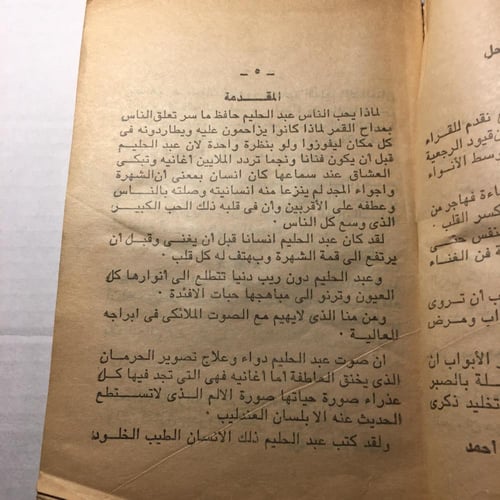 ـ ٥ ـ
المقدمة
لماذا يحب الناس عبد الحليم حافظ ما سر تعلق الناس
بمداح القمر لماذا كانوا يزاحمون عليه ويطاردونه فى
كل مكان ليفوزوا ولو بنظرة واحدة لان عبد الحليم
قبل أن يكون فنانا ونجما تردد الملايين أغانيه وتبكى
العشاق عند سماعها كان انسان بمعنى أن الشهرة
واجواء المجد لم ينزعا منه انسانيته وصلته بالناس
وعطفه على الأقربين وأن فى قلبه ذلك الحب الكبير
الذى وسع كل الناس ٠
لقد كان عبد الحليم انسانا قبل أن يغنى وقبل أن
يرتفع الى قمة الشهرة ويهتف له كل قلب ٠
وعبد الحليم دون ريب دنيا تتطلع الى أنوارها كل
العيون وترنو الى مباهجها حبات الافئدة ٠
ومن منا الذى لايهيم مع الصوت الملائكى فى ابراجه
العالية ٠
ان صوت عبد الحليم دواء وعلاج تصوير الحرمان
الذى يخنق العاطفة أما أغانيه فهى التى تجد فيها كل
عذراء صورة حياتها صورة الالم الذى لاتستطع
الحديث عنه الا بلسان العندليب ٠
ولقد كتب عبد الحليم ذلك الانسان الطيب الخلود
نقدم للقراء
قيود الرجعية
وسط الأنواء
فهاجر من
كسر القلب ٠
ة فن الغناء
ب أن تروى
اب ومرض
الأبواب ان
لة بالصبر
تخليد ذكرى
أحمد